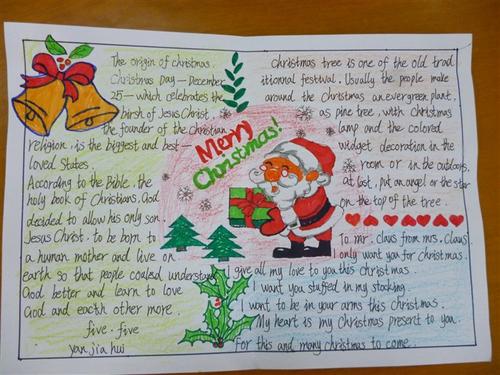 The origin of christmas.
Christmas Day — December
25 — which celebrates the
birsh of Jesus Christ,
the founder of the Christian
religion, is the biggest and best —
loved States.
According to the Bible, the
holy book of Christians, God
decided to allow his only son,
Jesus Christ, to be born to
a human mother and live on
earth so that people could understand
God better and learn to love
God and each other more.
five. five
yan jia hui
Merry
Christmas!
Christmas tree is one of the old trad
itionnal festival. Usually the people make
around the Christmas an evergreen plant,
as pine tree, with Christmas
lamp and the colored
widget decoration in the
room or in the outdoors,
at last, put an angel or the star
on the top of the tree.
To mr. claus from mrs. claus
I only want you for christmas.
I give all my love to you this christmas.
I want you stuffed in my stocking.
I want to be in your arms this Christmas.
My heart is my Christmas present to you.
For this and many christmas to come.